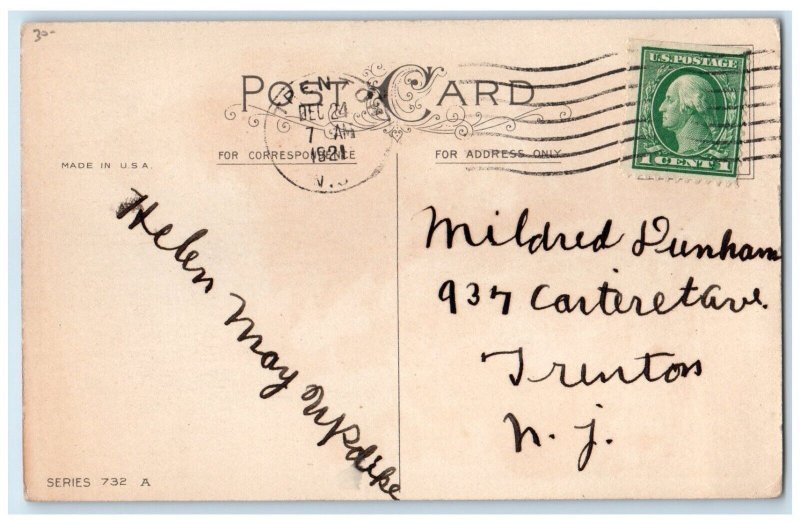 30-
POST CARD
TRENTON
DEC 24
7 AM
1921
N.J.
U.S. POSTAGE
1 CENT 1
FOR CORRESPONDENCE
FOR ADDRESS ONLY
MADE IN U.S.A.
Helen May Updike
Mildred Dunham
937 Carteret Ave.
Trenton
N. J.
SERIES 732 A